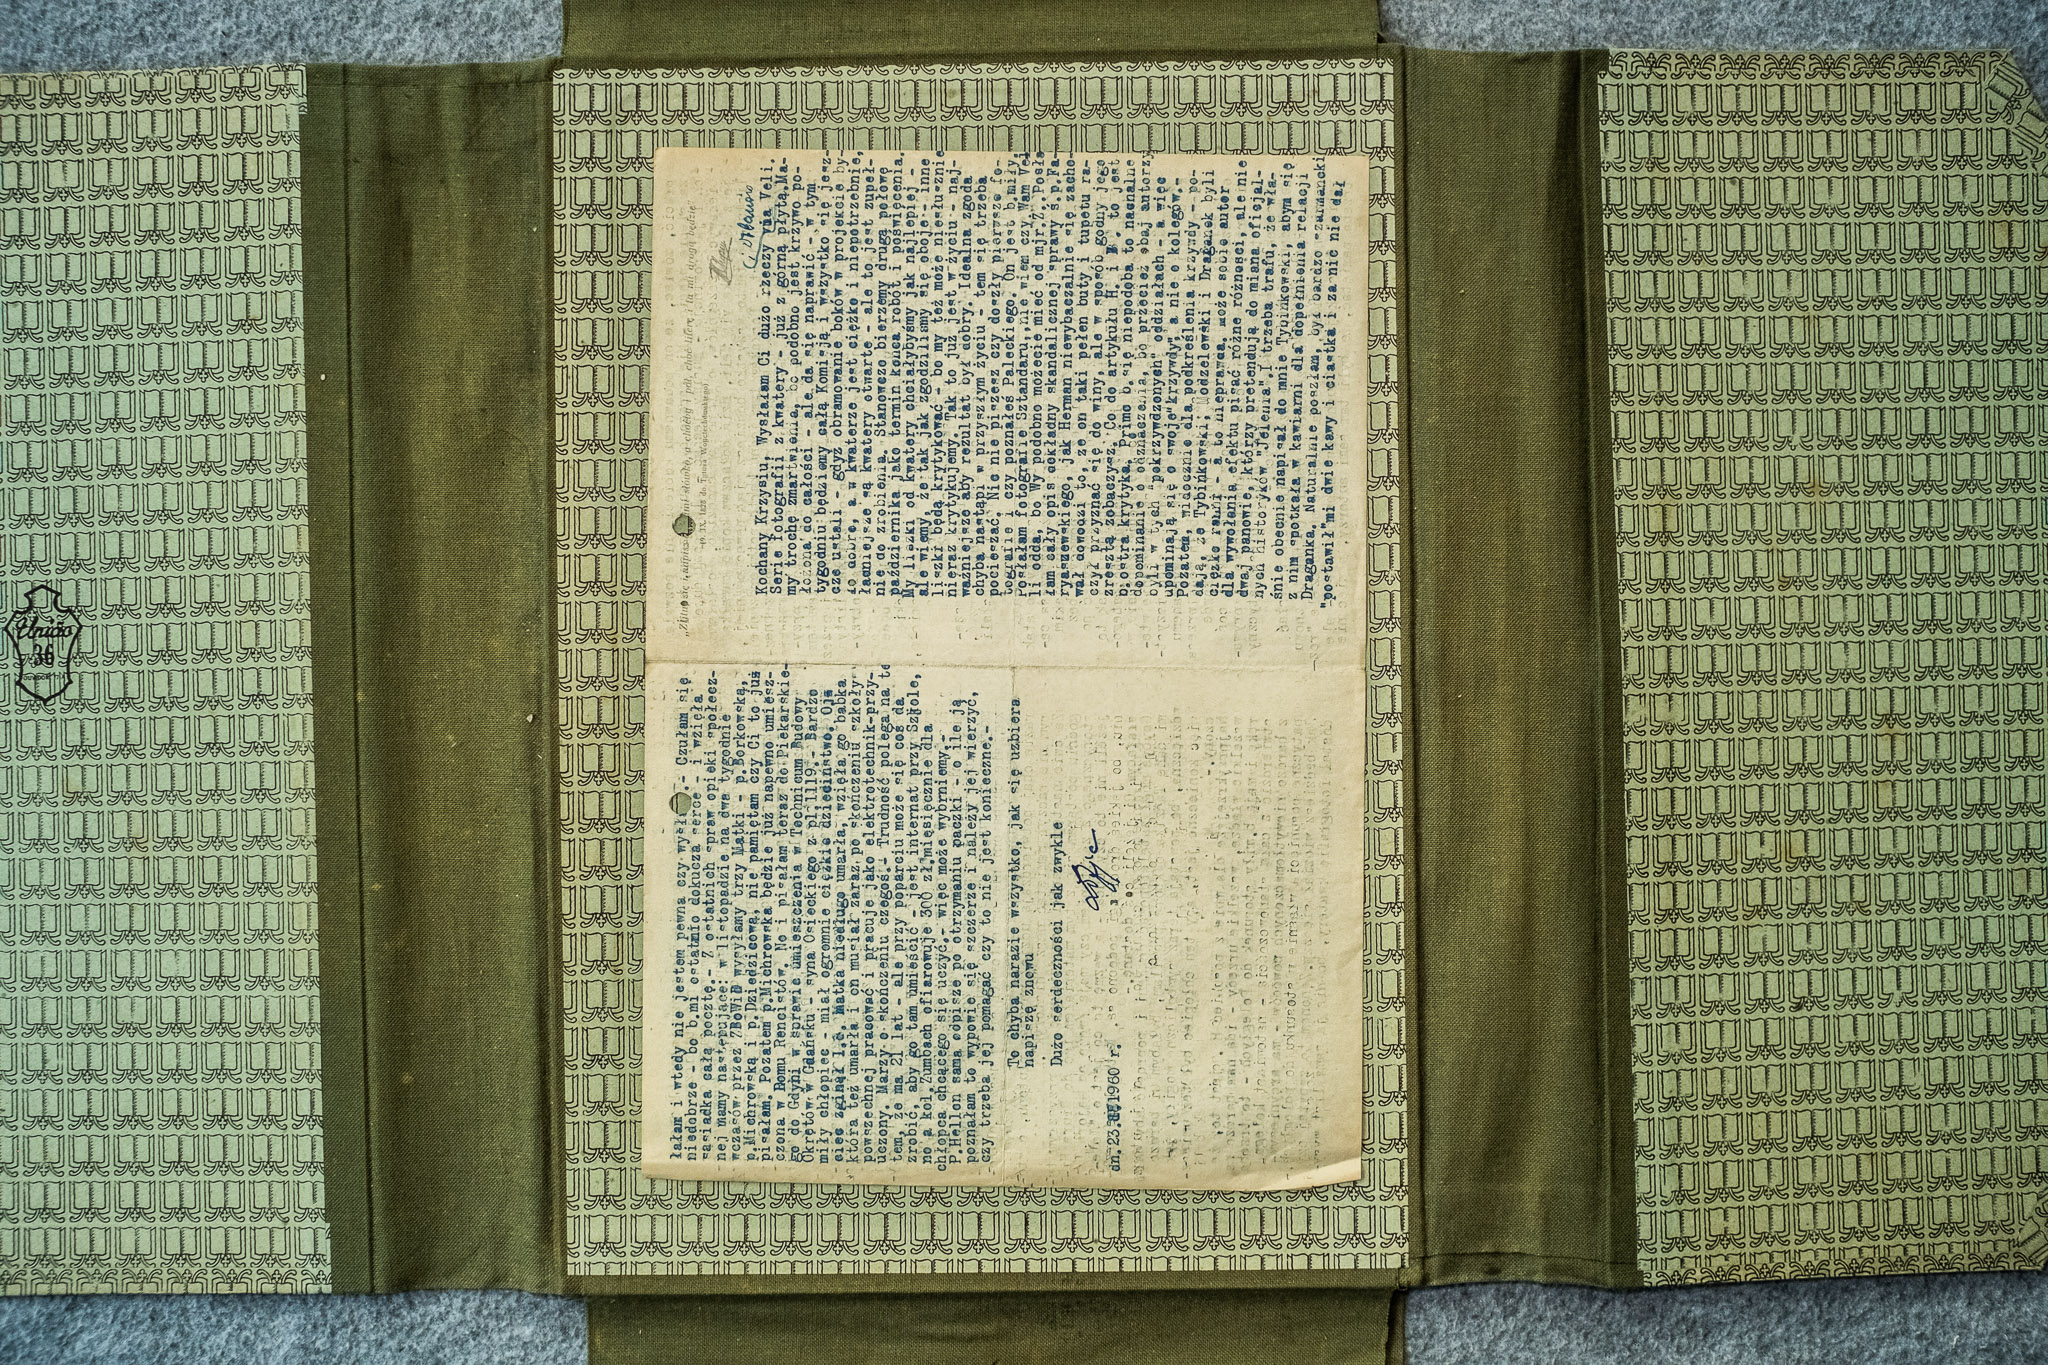 Kochany Krzysiu, Wysłałam Ci dużo rzeczy via Veli.
Serię fotografii z kwatery - już z górną płytą. Ma-
my trochę zmartwienia, bo podobno jest krzywo po-
łożona do całości - ale da się naprawić - w tym
tygodniu będziemy całą Komisją i wszystko się jesz-
cze ustali - gdyż obramowanie boków w projekcie by-
ło dobre, a w kwaterze jest ciężkie i niepotrzebnie,
ładniejsze są kwatery otwarte - ale to jest zupeł-
nie do zrobienia. Stanowczo bierzemy drugą połowę
października jako termin końca robót i poświęcenia.
My laiki od kwatery chciałybyśmy jak najlepiej -
ale wiemy że tak jak zgodziliśmy się oboje - inne
liszki będą krytykować - bo my też może niesłusznie
nieraz krytykujemy. Tak to już jest w życiu - naj-
ważniejsze aby rezultat był dobry. Idealna zgoda
chyba nastąpi w przyszłym życiu - tem się trzeba
pocieszać. Nic nie piszesz czy doszły pierwsze fo-
tografie i czy poznałeś Paleckiego. On jest b.miły.
Posłałam fotografie sztandaru, nie wiem czy Wam Vel
li odda, bo Wy podobno możecie mieć od mjr. Ż. Posła
łam cały opis dokładny skandalicznej sprawy ś.p.Fa-
ryaszewskiego, jak Herman niewybaczalnie się zacho-
wał dowodzi to, że on taki pełen buty i tupetu ra-
czył przyznać się do winy, ale w sposób godny jego
zresztą zobaczysz. Co do artykułu H. i B. to jest
b.ostra krytyka. Primo b.się niepodoba to nachalne
dopominanie o odznaczenia, bo przecież obaj autorzy
byli w tych "pokrzywdzonych" oddziałach - a więc
upominają się o swoje "krzywdy", a nie o kolegów.-
Pozatem, widocznie dla podkreślenia krzywdy - po-
dają, że Tybinkowski, Modzelewski i Draganek byli
ciężko ranni - a to nieprawda. Może sobie autor
dla wywołania efektu pisać różne różności, ale nie
dwaj panowie, którzy pretendują do miana oficjal-
nych historyków "Jelenia". I trzeba trafu, że wła-
śnie obecnie napisał do mnie Tybinkowski, abym się
z nim spotkała w kawiarni dla dopełnienia relacji
Draganka. Naturalnie poszłam, był bardzo szarmancki
"postawił" mi dwie kawy i ciastka i za nic nie dał
łałam i wtedy nie jestem pewna czy
niedobrze - bo b.mi ostatnio dokucza serce - i wzięła
sąsiadka całą pocztę.- Z ostatnich spraw opieki społecz-
nej mamy następujące: w listopadzie na dwa tygodnie
wczasów przez ZBoWiD wysyłamy trzy Matki - p.Borkowską,
p.Michrowską i p.Dziedzicową, nie pamiętam czy Ci to już
pisałam. Pozatem p.Michrowska będzie już napewno umiesz-
czona w Domu Rencistów. No i pisałam teraz do Piekarskie-
go do Gdyni w sprawie umieszczenia w Technicum Budowy
Okrętów w Gdańsku - syna Osieckiego z pl.1119.- Bardzo
miły chłopiec - miał ogromnie ciężkie dzieciństwo. Oj
ciec zginął, matka niedługo umarła, wzięła go babka
która też umarła i on musiał zaraz po skończeniu szkoły
powszechnej pracować i pracuje jako elektrotechnik-przy-
uczony. Marzy o skończeniu czegoś. Trudność polega na te
tem, że ma 21 lat - ale przy poparciu może się coś da
zrobić, aby go tam umieścić - jest internat przy Szkole,
no a kol.Zumbach ofiarowuje 300 zł.miesięcznie dla
chłopca chcącego się uczyć,- więc może wybrniemy.-
P.Hellon sama odpisze po otrzymaniu paczki - o ile ją
poznałam to wypowie się szczerze i należy jej wierzyć,
czy trzeba jej pomagać czy to nie jest konieczne.-
To chyba narazie wszystko, jak się uzbiera
napiszę znowu
Dużo serdeczności jak zwykle
dn.23. 1960 r.
União
36